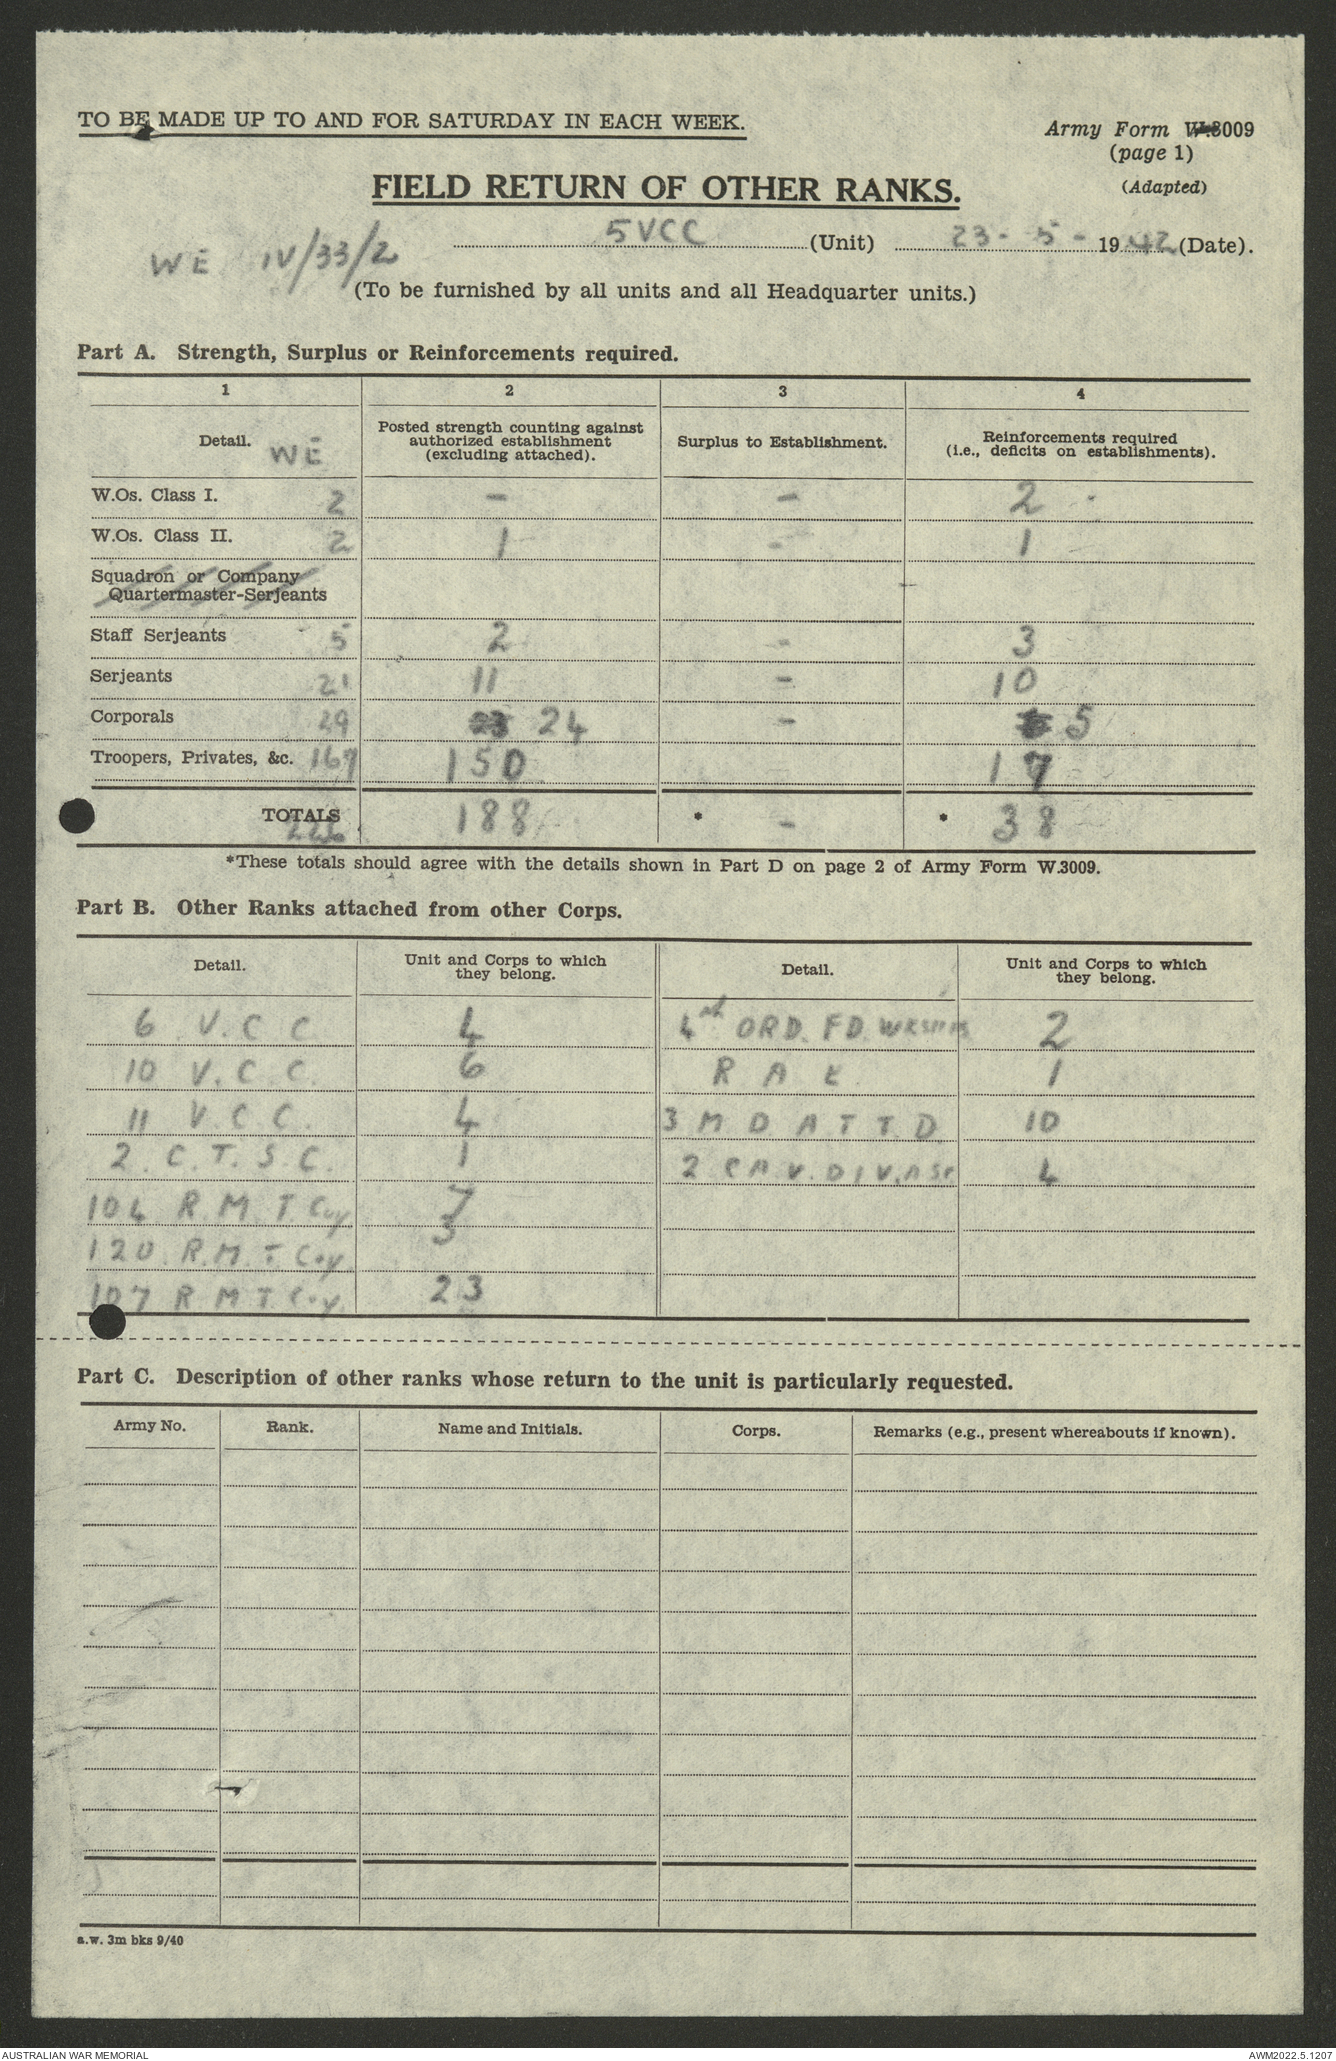 TO BE MADE UP TO AND FOR SATURDAY IN EACH WEEK.
Army Form W.3009
(page 1)
(Adapted)
FIELD RETURN OF OTHER RANKS.
5 VCC (Unit) 23 - 5 - 1942 (Date).
WE IV/33/2
(To be furnished by all units and all Headquarter units.)
Part A. Strength, Surplus or Reinforcements required.
1 2 3 4
Detail. WE
Posted strength counting against authorized establishment (excluding attached).
Surplus to Establishment.
Reinforcements required (i.e., deficits on establishments).
W.Os. Class I. 2 - - 2
W.Os. Class II. 2 1 - 1
Squadron or Company
Quartermaster-Serjeants
Staff Serjeants 5 2 - 3
Serjeants 21 11 - 10
Corporals 29 23 24 - 5
Troopers, Privates, &c. 167 150 17
TOTALS 226 188 * - * 38
*These totals should agree with the details shown in Part D on page 2 of Army Form W.3009.
Part B. Other Ranks attached from other Corps.
Detail.
Unit and Corps to which they belong.
Detail.
Unit and Corps to which they belong.
6 V.C C 4 4th ORD. FD. WKSHPS 2
10 V.C.C. 6 R A E 1
11 V.C C. 4 3 M D A T T D 10
2. C.T.S.C. 1 2 CAV. DIV. ASC 4
104 R.M.T. Coy 7
120 R.M.T Coy 3
107 R M T Coy 23
Part C. Description of other ranks whose return to the unit is particularly requested.
Army No. Rank. Name and Initials. Corps. Remarks (e.g., present whereabouts if known).
a.w. 3m bks 9/40
AUSTRALIAN WAR MEMORIAL
AWM2022.5.1207